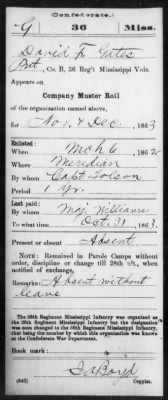 (Confederate.)
G 36 Miss.
David F. Gates
Pvt, Co. B, 36 Reg't Mississippi Vols.
Appears on
Company Muster Roll
of the organization named above,
for Nov. & Dec., 1863
Enlisted:
When Mch 6, 1862
Where Meridian
By whom Capt. Tolson
Period 1 Yr.
Last paid:
By whom Maj. Williams
To what time Oct. 31, 1863.
Present or absent Absent
NOTE: Remained in Parole Camps without
order, discipline or change till 28th ult., when
notified of exchange.
Remarks: Absent without
leave
The 36th Regiment Mississippi Infantry was organized as
the 28th Regiment Mississippi Infantry but the designation
was soon changed to the 36th Regiment Mississippi Infantry,
that being the number by which this organization was known
at the Confederate War Department.
Book mark:
Boyd
(642)